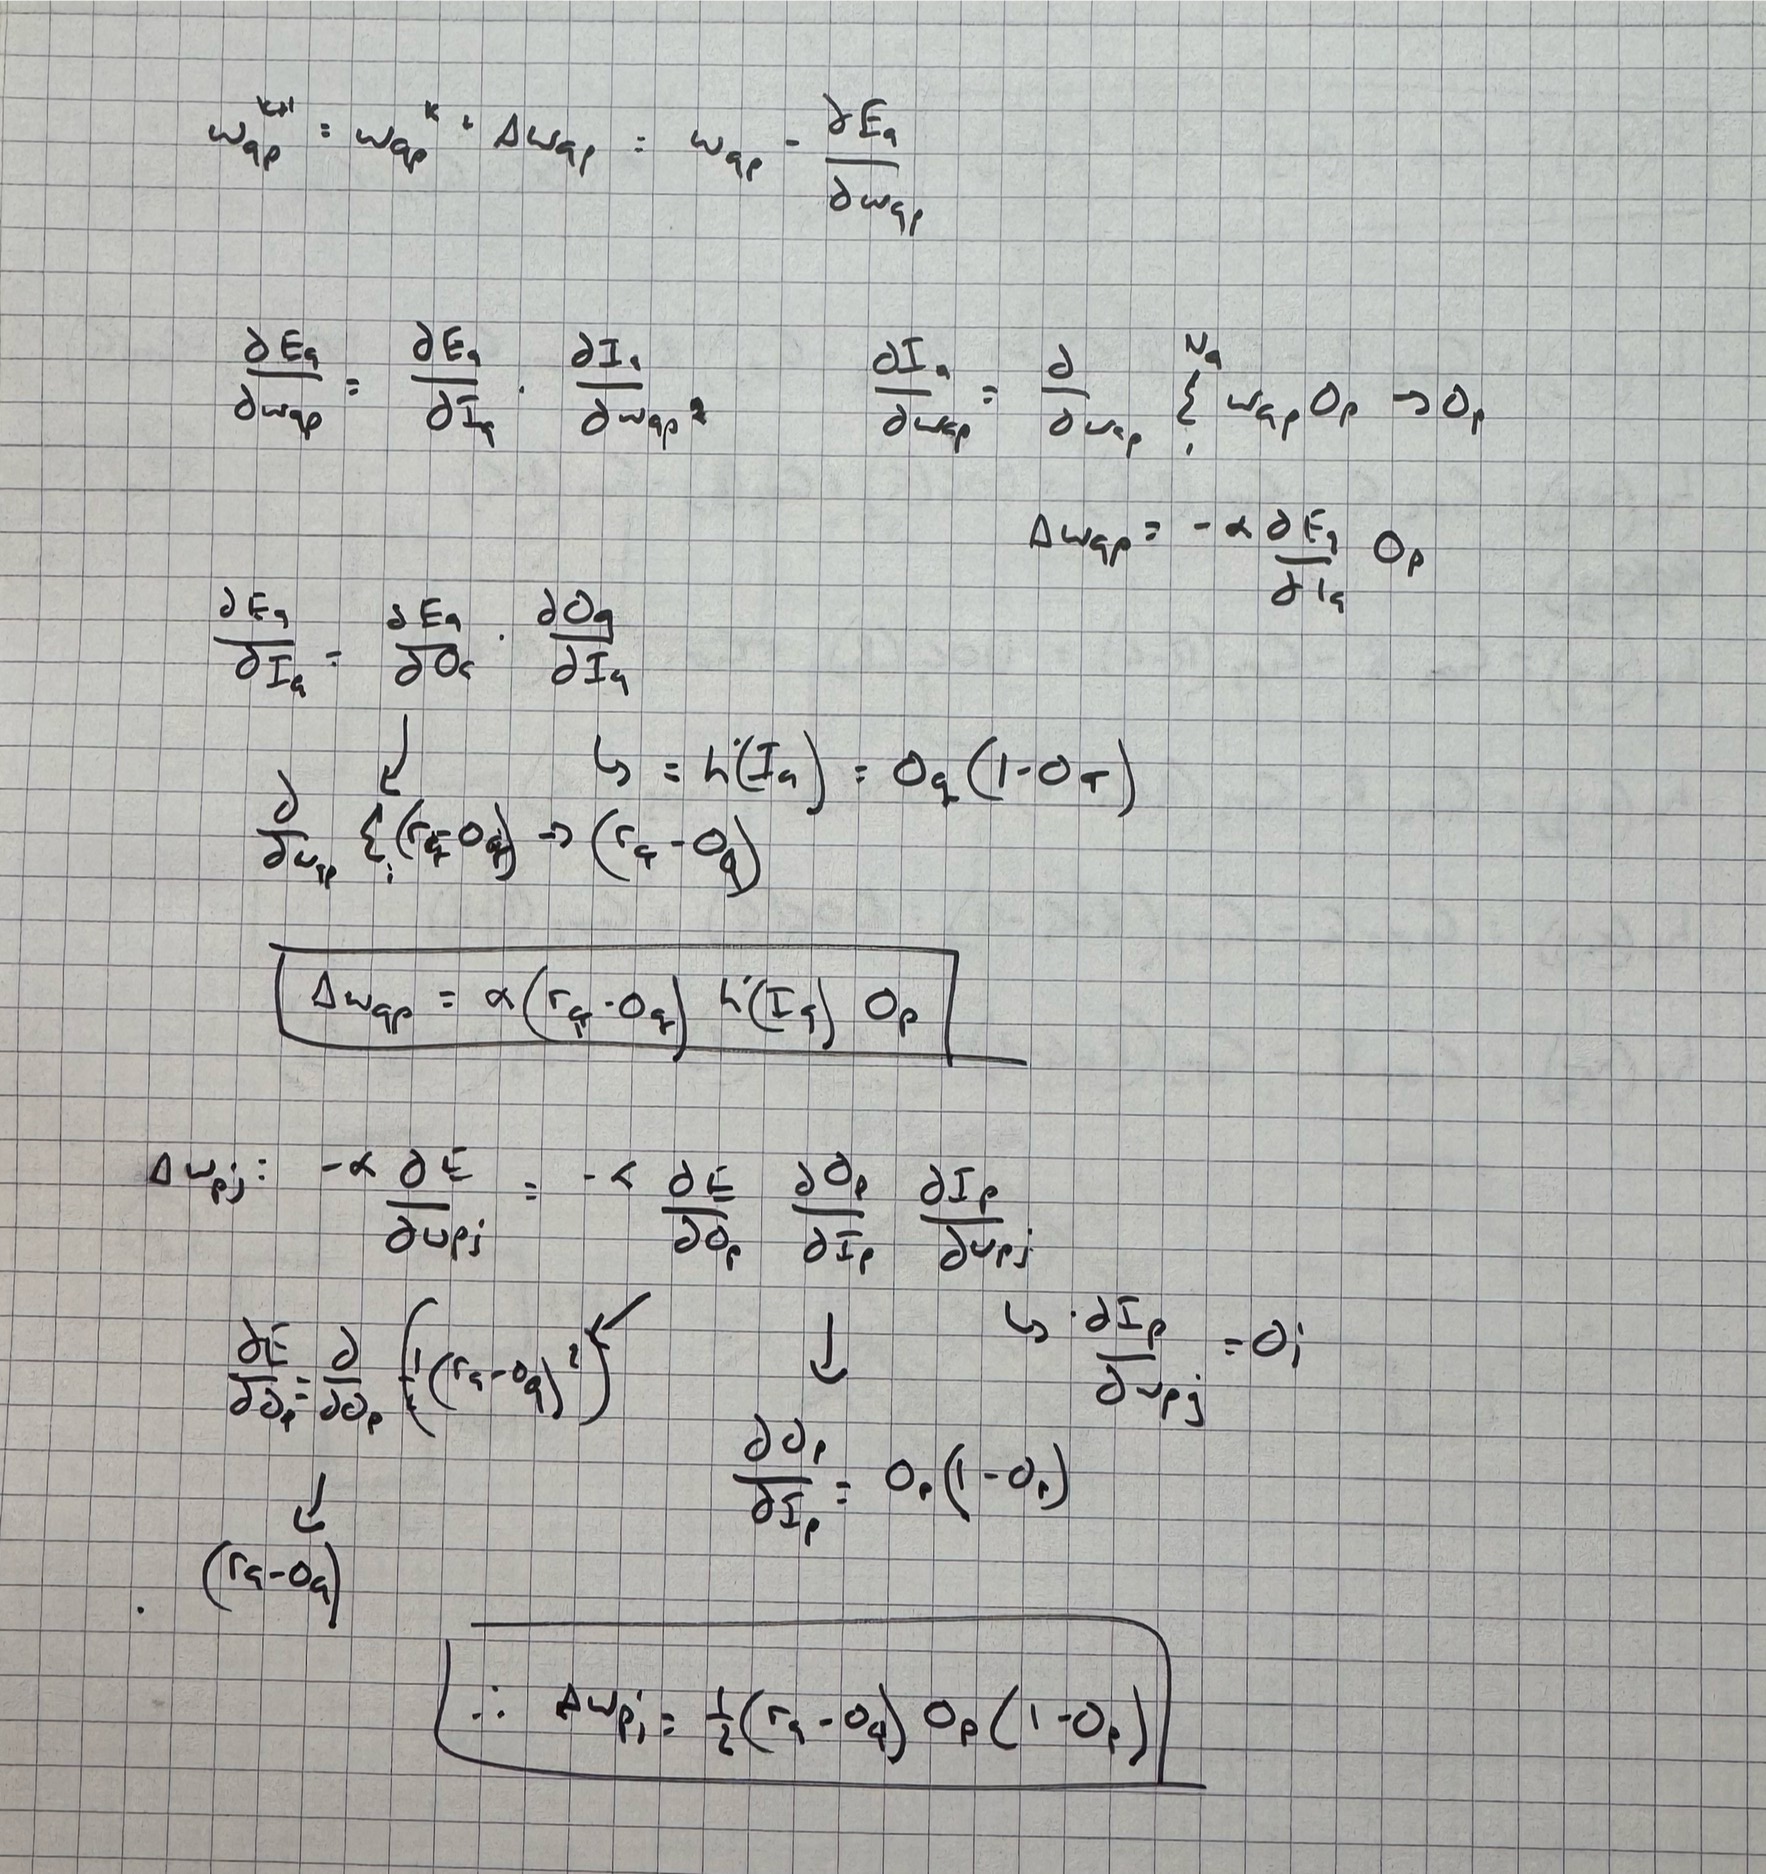 w_qp^{k+1} = w_qp^k + Δw_qp = w_qp - ∂E_q/∂w_qp
∂E_q/∂w_qp = ∂E_q/∂I_q · ∂I_q/∂w_qp
∂I_q/∂w_qp = ∂/∂w_qp Σ_1^{N_q} w_qp O_p → O_p
Δw_qp = -α ∂E_q/∂I_q O_p
∂E_q/∂I_q = ∂E_q/∂O_q · ∂O_q/∂I_q
↓ ↳ = h'(I_q) = O_q (1-O_q)
∂/∂w_qp Σ_i (r_q-O_q) → (r_q-O_q)
Δw_qp = α(r_q-O_q) h'(I_q) O_p
Δw_pj: -α ∂E/∂w_pj = -α ∂E/∂O_p ∂O_p/∂I_p ∂I_p/∂w_pj
∂E/∂O_p = ∂/∂O_p (½(r_q-O_q)²)
↓ ↳ ∂I_p/∂w_pj = O_j
∂O_p/∂I_p = O_p(1-O_p)
↓
(r_q-O_q)
∴ Δw_pj = ½(r_q-O_q) O_p(1-O_p)